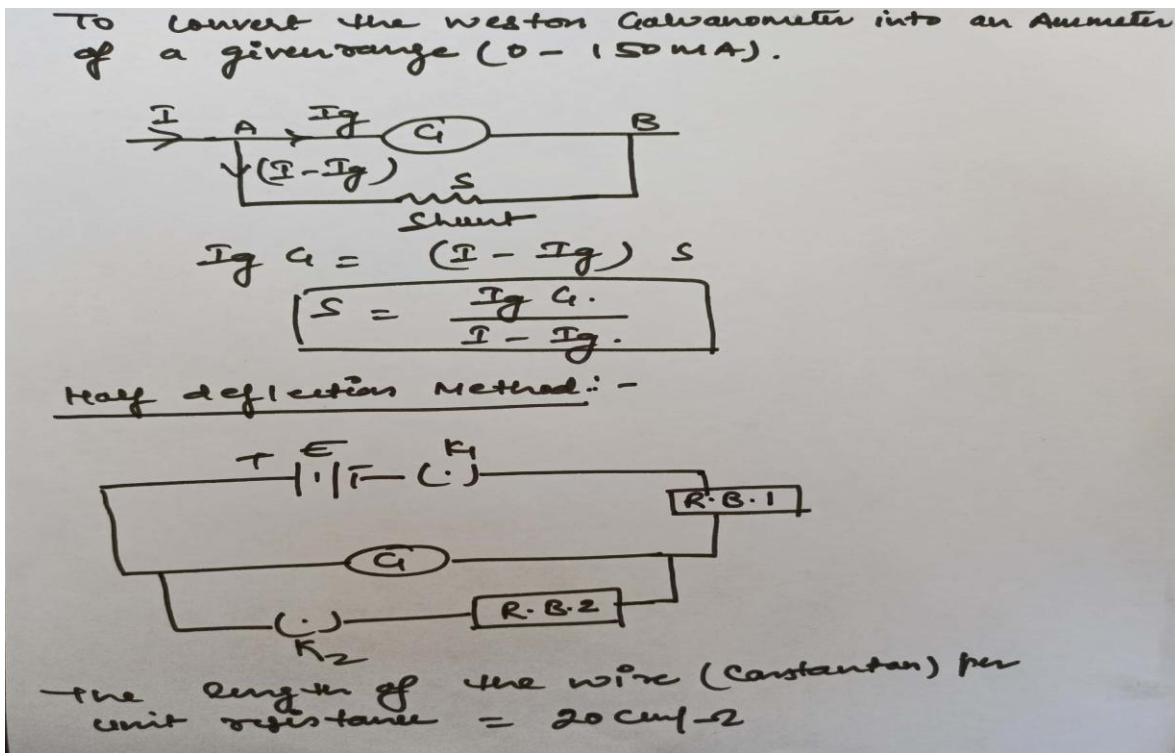 To convert the weston Galvanometer into an Ammeter
of a given range (0 - 150 mA).
I A Ig G B
(I - Ig) S
Shunt
Ig G = (I - Ig) S
S = Ig G. / I - Ig.
Half deflection Method: -
+ E - K1
R.B.1
G
R.B.2
K2
The length of the wire (constantan) per
unit resistance = 20 cm/Ω